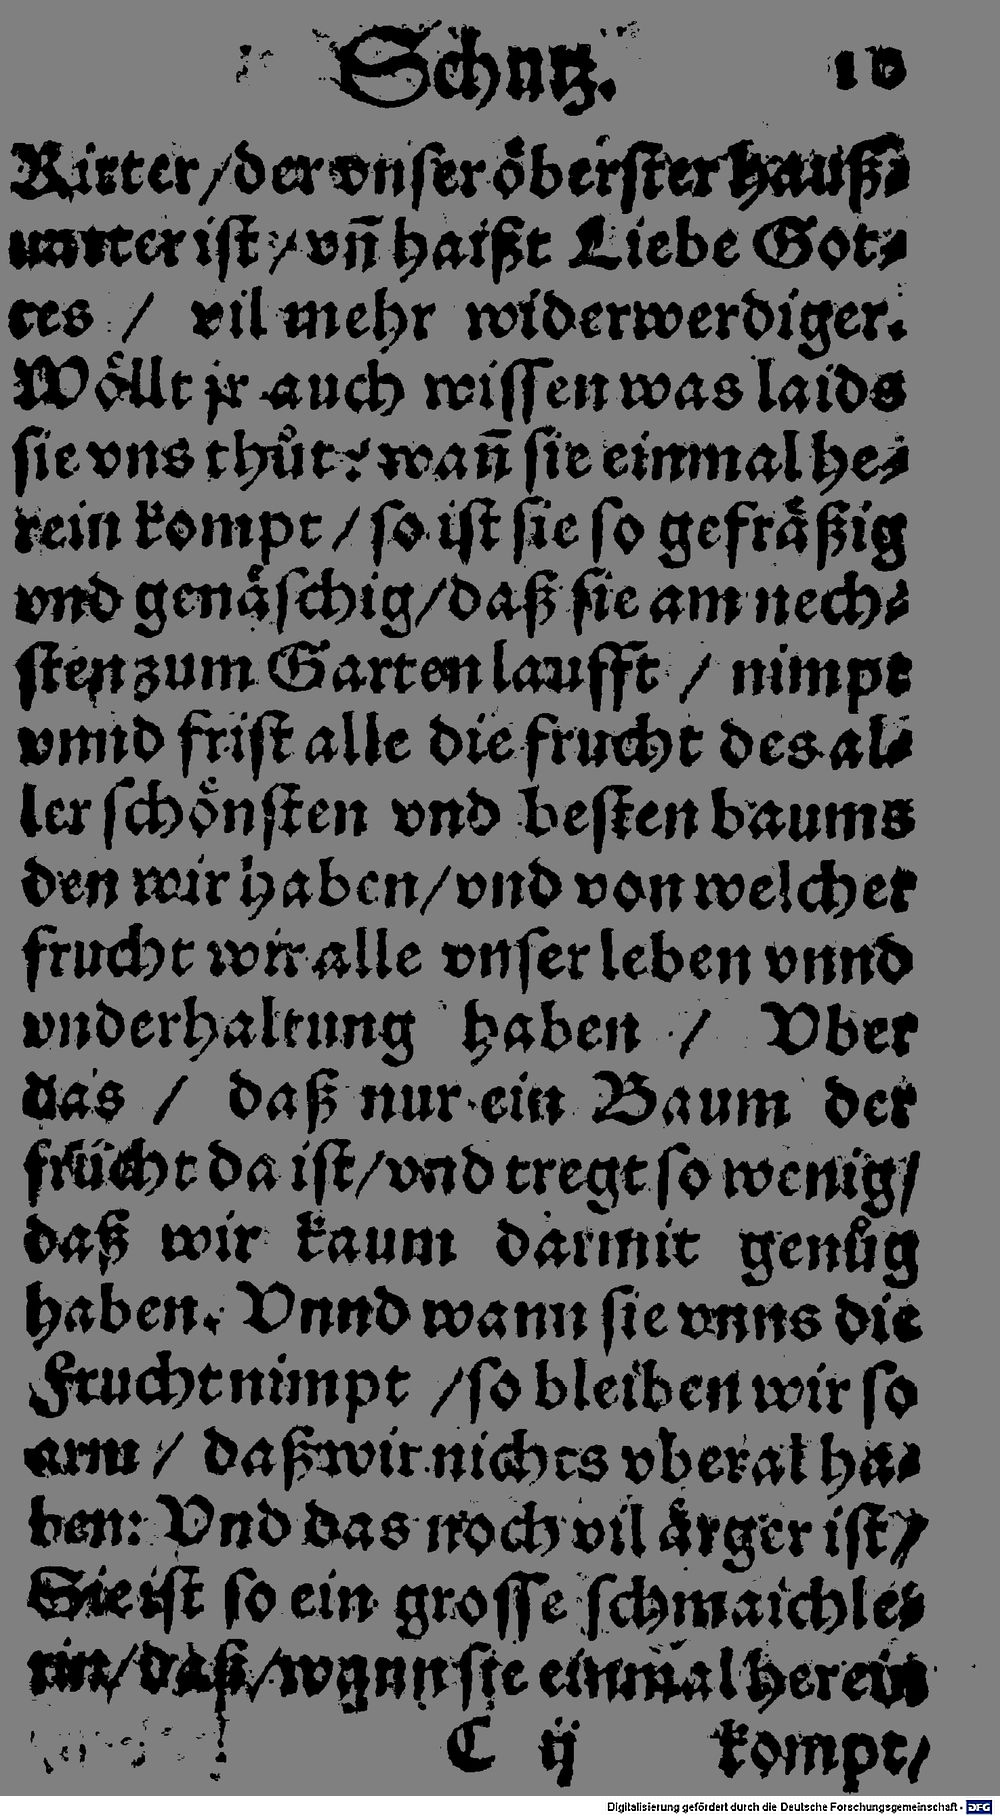 Schutz. 10
Ritter / der vnser öberster Hauß⸗
uatter ist / vñ haißt Liebe Got⸗
tes / vil mehr widerwerdiger.
Wöllt jr auch wissen was laids
sie vns thůt: wañ sie einmal he⸗
rein kompt / so ist sie so gefräßig
vnd genäschig / daß sie am nech⸗
sten zum Garten laufft / nimpt
vnnd frist alle die frucht des al⸗
ler schönsten vnd besten baums
den wir haben / vnd von welcher
frucht wir alle vnser leben vnnd
vnderhaltung haben / Vber
das / daß nur ein Baum der
frücht da ist / vnd tregt so wenig /
daß wir kaum darmit genůg
haben. Vnnd wann sie vnns die
Frucht nimpt / so bleiben wir so
arm / daß wir nichts vberal ha⸗
ben: Vnd das noch vil ärger ist /
Sie ist so ein grosse schmaichle⸗
rin / daß / wann sie einmal herein
C ij kompt /
Digitalisierung gefördert durch die Deutsche Forschungsgemeinschaft - DFG